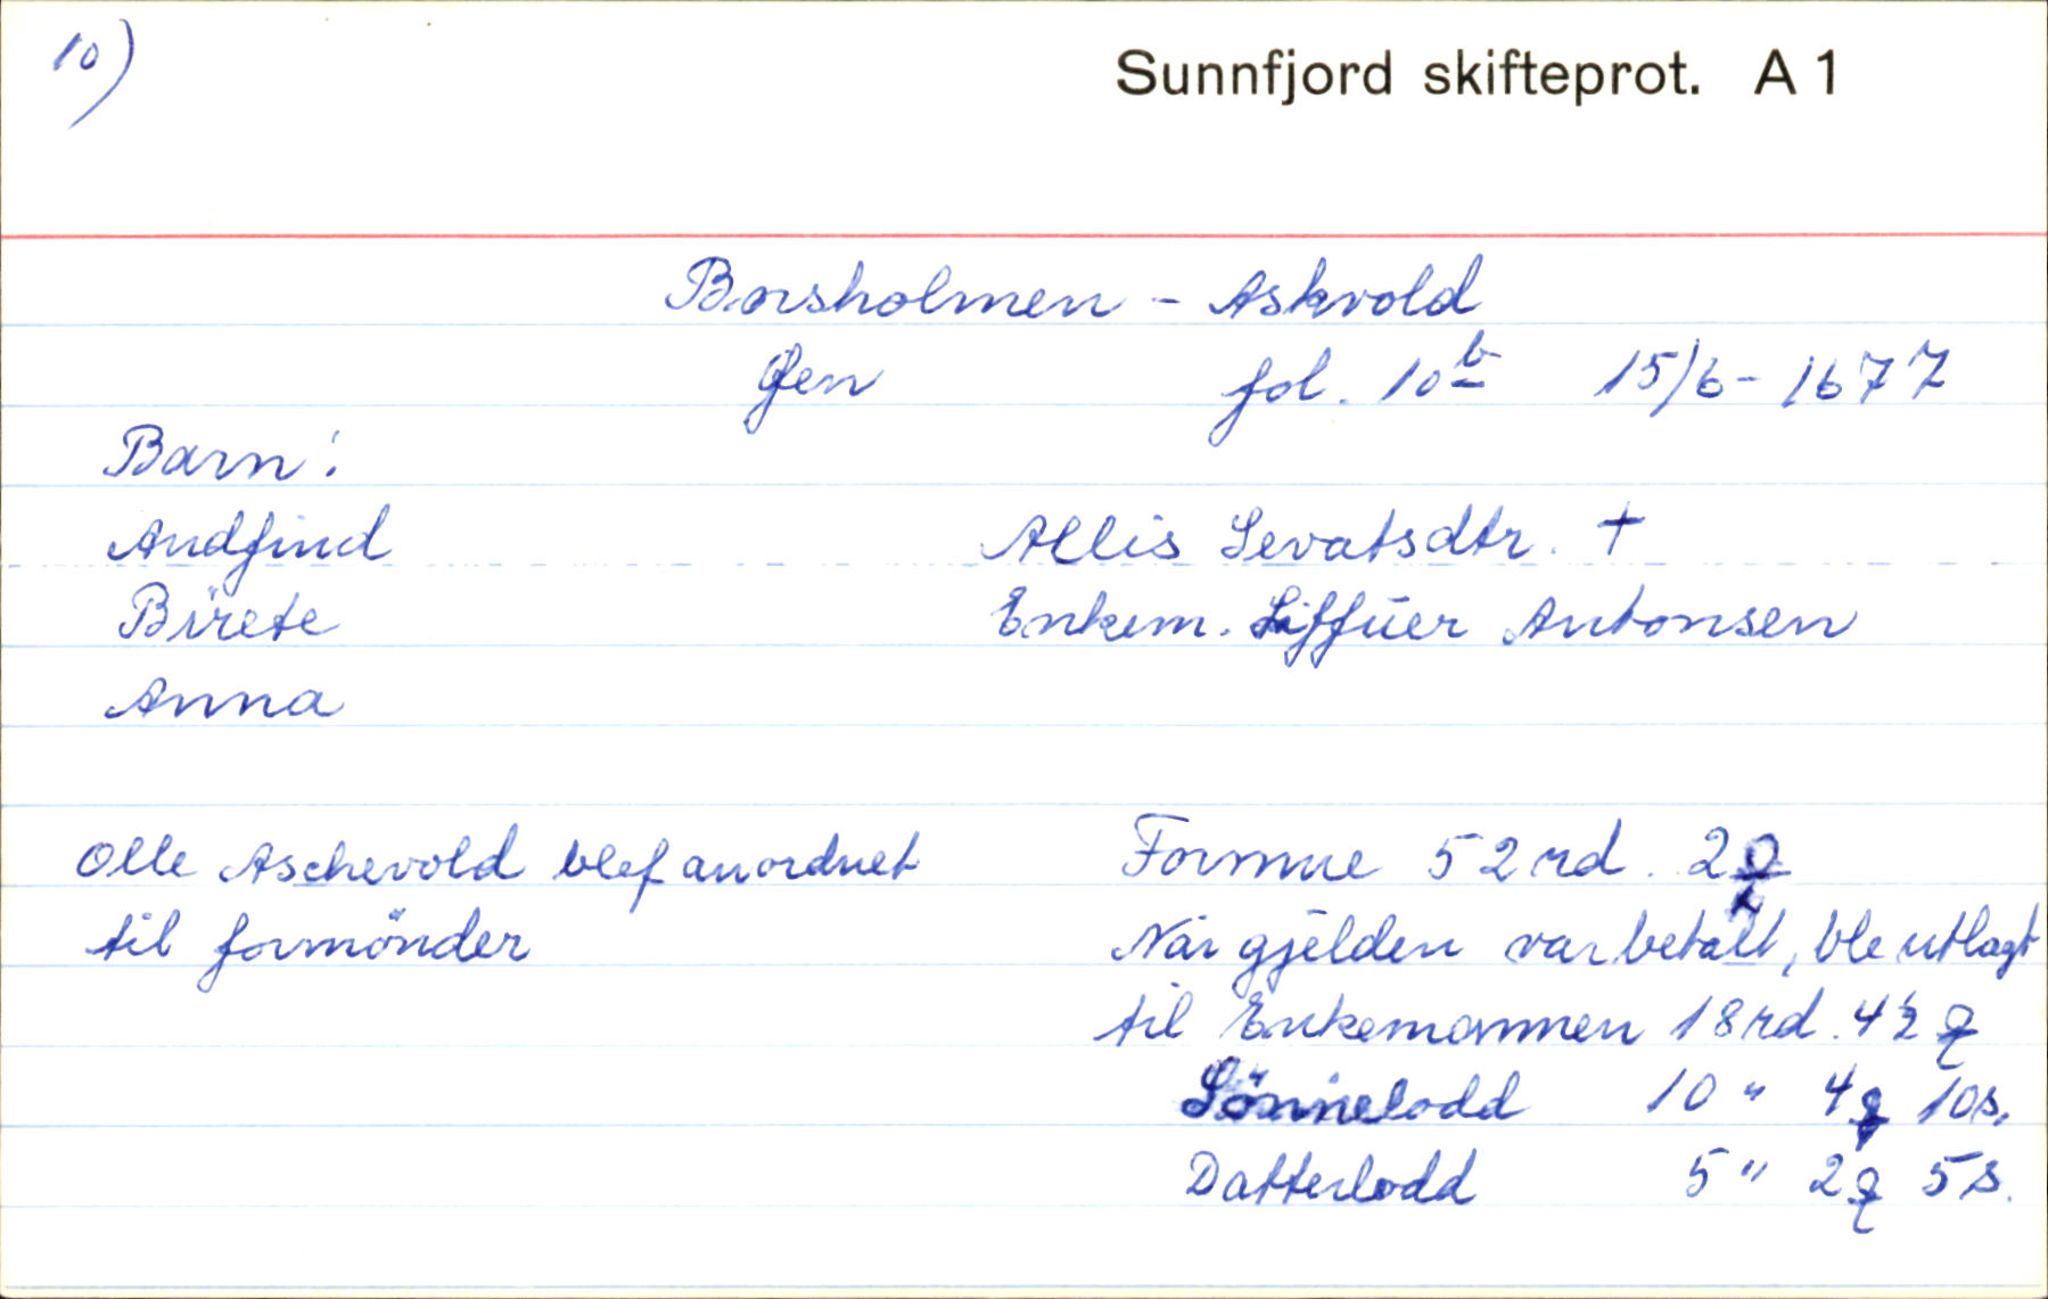 10)
Sunnfjord skifteprot. A 1
Borsholmen - Askvold
Øen fol. 10b 15/6 - 1677
Barn:
Andfind
Allis Sevatsdtr. †
Birete
Enkem. Siffuer Antonsen
Anna
Olle Aschevold blef anordnet
til formönder
Formue 52 rd. 2
Når gjelden var betalt, ble utlagt
til Enkemannen 18 rd. 4½
Sönnelodd 10 " 4 10 s.
Datterlodd 5 " 2 5 s.